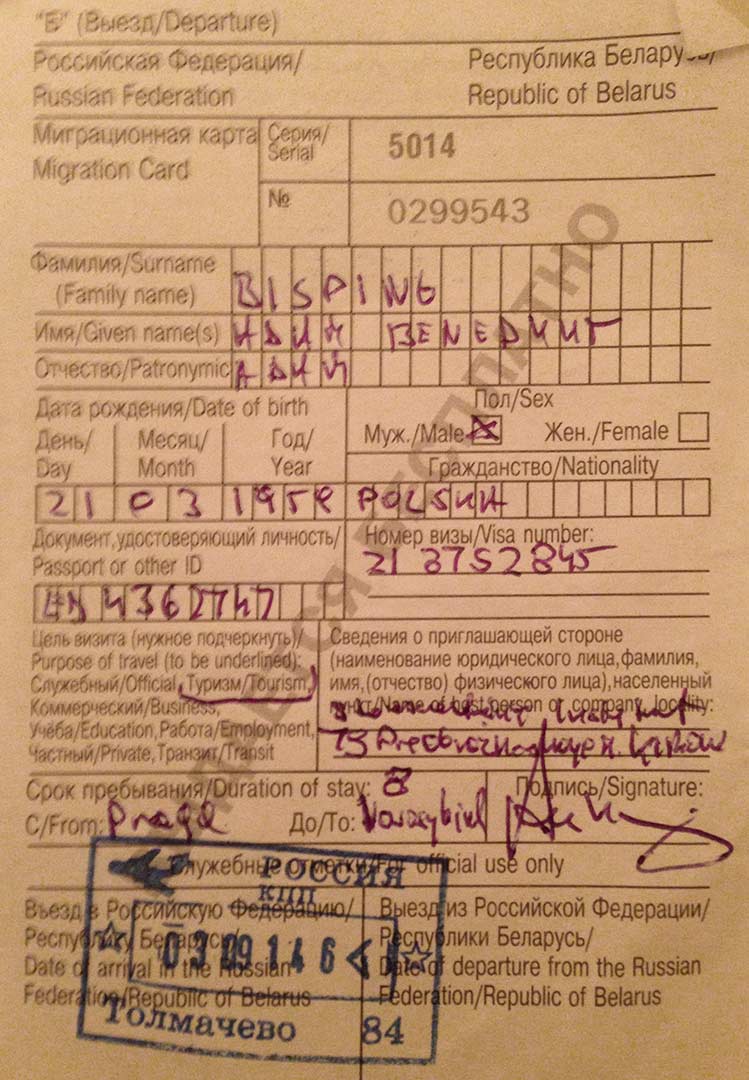 "Б" (Выезд/Departure)
Российская Федерация/ Республика Беларусь/
Russian Federation Republic of Belarus
Миграционная карта Серия/ 5014
Migration Card Serial
№ 0299543
Фамилия/Surname
(Family name) BISPING
Имя/Given name(s)
Отчество/Patronymic
Дата рождения/Date of birth Пол/Sex
День/ Месяц/ Год/ Муж./Male Жен./Female
Day Month Year Гражданство/Nationality
21 03 1959 POLSKA
Документ, удостоверяющий личность/ Номер визы/Visa number:
Passport or other ID 21 3752845
Цель визита (нужное подчеркнуть)/ Сведения о приглашающей стороне
Purpose of travel (to be underlined): (наименование юридического лица, фамилия,
Служебный/Official, Туризм/Tourism, имя, (отчество) физического лица), населенный
Коммерческий/Business, пункт/Name of host person or company, locality:
Учёба/Education, Работа/Employment,
Частный/Private, Транзит/Transit
Срок пребывания/Duration of stay: 8 Подпись/Signature:
С/From: Praga До/To:
Служебные отметки/For official use only
РОССИЯ
КПП
Въезд в Российскую Федерацию/ Выезд из Российской Федерации/
Республику Беларусь/ Республики Беларусь/
03 09 14 6
Date of arrival in the Russian Date of departure from the Russian
Federation/Republic of Belarus Federation/Republic of Belarus
Толмачево 84